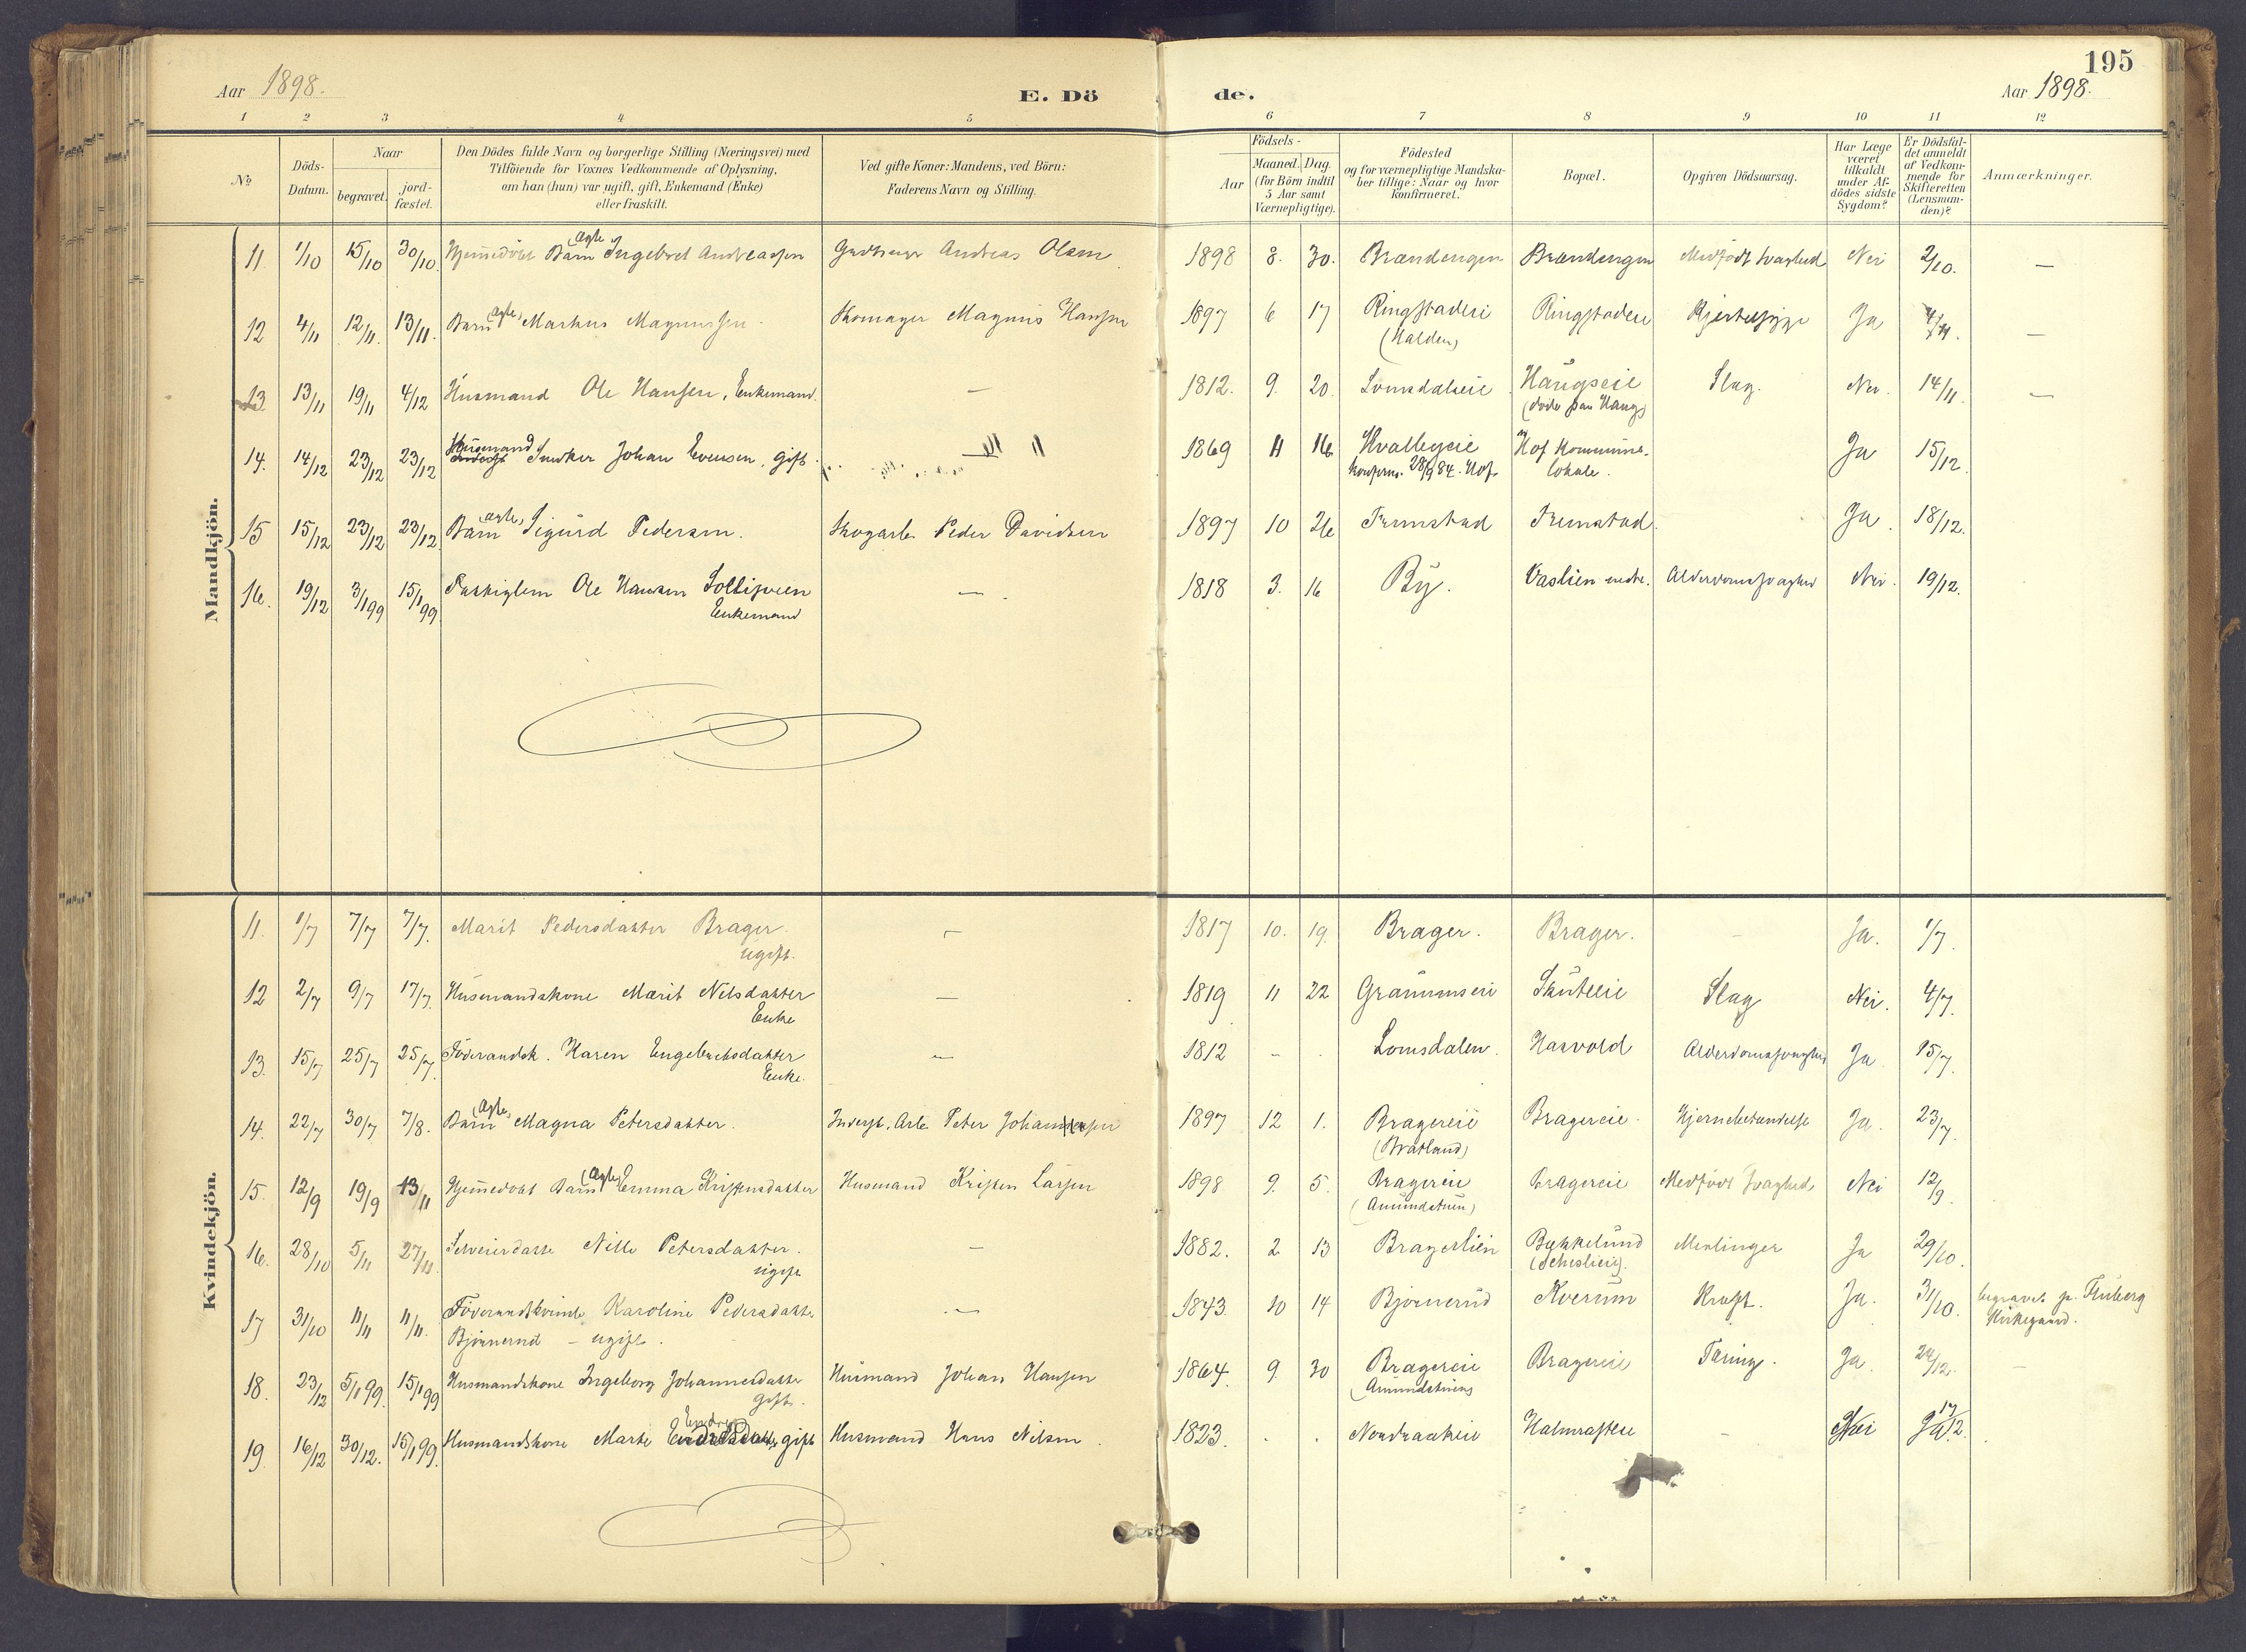 195
Aar 1898.
E. Dö
de.
Aar 1898.
1 2 3 4 5 6 7 8 9 10 11 12
No
Döds-
Datum.
Naar
begravet.
jord-
fæstet.
Den Dödes fulde Navn og borgerlige Stilling (Næringsvei) med
Tilföiende for Voxnes Vedkommende af Oplysning,
om han (hun) var ugift, gift, Enkemand (Enke)
eller fraskilt.
Ved gifte Koner: Mandens, ved Börn:
Faderens Navn og Stilling.
Födsels-
Aar
Maaned. Dag.
(for Börn indtil
5 Aar samt
Værnepligtige).
Födested
og for værnepligtige Mandska-
ber tillige: Naar og hvor
konfirmeret.
Bopæl.
Opgiven Dödsaarsag.
Har Læge
været
tilkaldt
under Af-
dödes sidste
Sygdom?
Er Dödsfal-
det anmeldt
af Vedkom-
mende for
Skifteretten
(Lensman-
den)?
Anmærkninger.
Mandkjön.
11. 1/10 15/10 30/10. Hjemmedöbt Barn (Ægte) Ingebret Andreassen Andreas Olsen 1898 8. 30. Brændengen Brændengen Medfödt Svaghed Nei 2/10. —
12 4/11 12/11. 13/11. Barn ægte, Markus Magnussen - Skomager Magnus Hansen 1897 6 17 Ringstaderi Ringstaderi Hjertesyge Ja 4/11. —
(Halden)
13 13/11 19/11 4/12 Husmand Ole Hansen, Enkemand. — 1812. 9. 20. Lomsdaleie Haugseie Slag. Nei. 14/11. —
(döde paa Haug)
14. 14/12 23/12 23/12 Husmand Snedker Johan Evensen, gift. — 1869 11 16 Hvalbyeie Hof Kommune- Ja 15/12.
konfirm. 28/9 84. Hof. lokale.
15 15/12 23/12 23/12 Barn ægte, Sigurd Pedersen. Skogarb. Peder Davidsen 1897 10 26 Tremstad Tremstad. Ja. 18/12.
16. 19/12 3/1 99 15/1 99 Ole Hansen — 1818 3. 16 By. Vaslien Alderdomssvaghed Nei. 19/12.
Enkemand
Kvindekjön.
11. 1/7 7/7 7/7. Marit Pedersdatter Brager. — 1817 10. 19. Brager. Brager. — Ja. 1/7.
ugift.
12 2/7 9/7 17/7. Husmandskone Marit Nilsdatter — 1819 11 22 Skuteeie Slag Nei. 4/7.
Enke
13. 15/7 25/7 25/7. Föderaadsk. Karen Engebretsdatter — 1812 - . Lomsdalen. Hasvold Alderdomssvaghed Ja 15/7.
Enke.
14. 22/7 30/7 7/8. Barn (Ægte) Magna Petersdatter. Inderst. Arb. Peter 1897 12 1. Bragereie Bragereie. Hjernebetændelse Ja. 23/7.
(Bratland)
15. 12/9 19/9 13/11 Hjemmedöbt Barn (Ægte) Emma Kristensdatter Husmand Kristen Larsen 1898 9. 5. Bragereie Bragereie Medfödt Svaghed Nei 12/9.
(Amundstuen)
16. 28/10 5/11 27/11. Selveierdatt. Nille Petersdatter. — 1882. 2 13 Bragerlien Bækkelund Ja 29/10.
ugift
17 31/10 11/11 11/11. Föderaadskvinde Karoline Pedersdatter — 1843. 10 14 Bjornerud Kverum Kræft. Ja. 31/10. begravet p. Fluberg
Bjornerud - ugift. Kirkegaard.
18. 23/12 5/1 99. 15/1 99 Husmandskone Ingeborg Johannesdatter Husmand Johan Hansen 1864. 9. 30 Bragereie Bragereie Tæring. Ja. 24/12. —
gift. (Amundstuen)
19. 16/12 30/12. 15/1 99. Husmandskone Marte gift Husmand Hans Nilsen. 1823. . . Nordraakeie Halmrasteie — Nei 17/12.